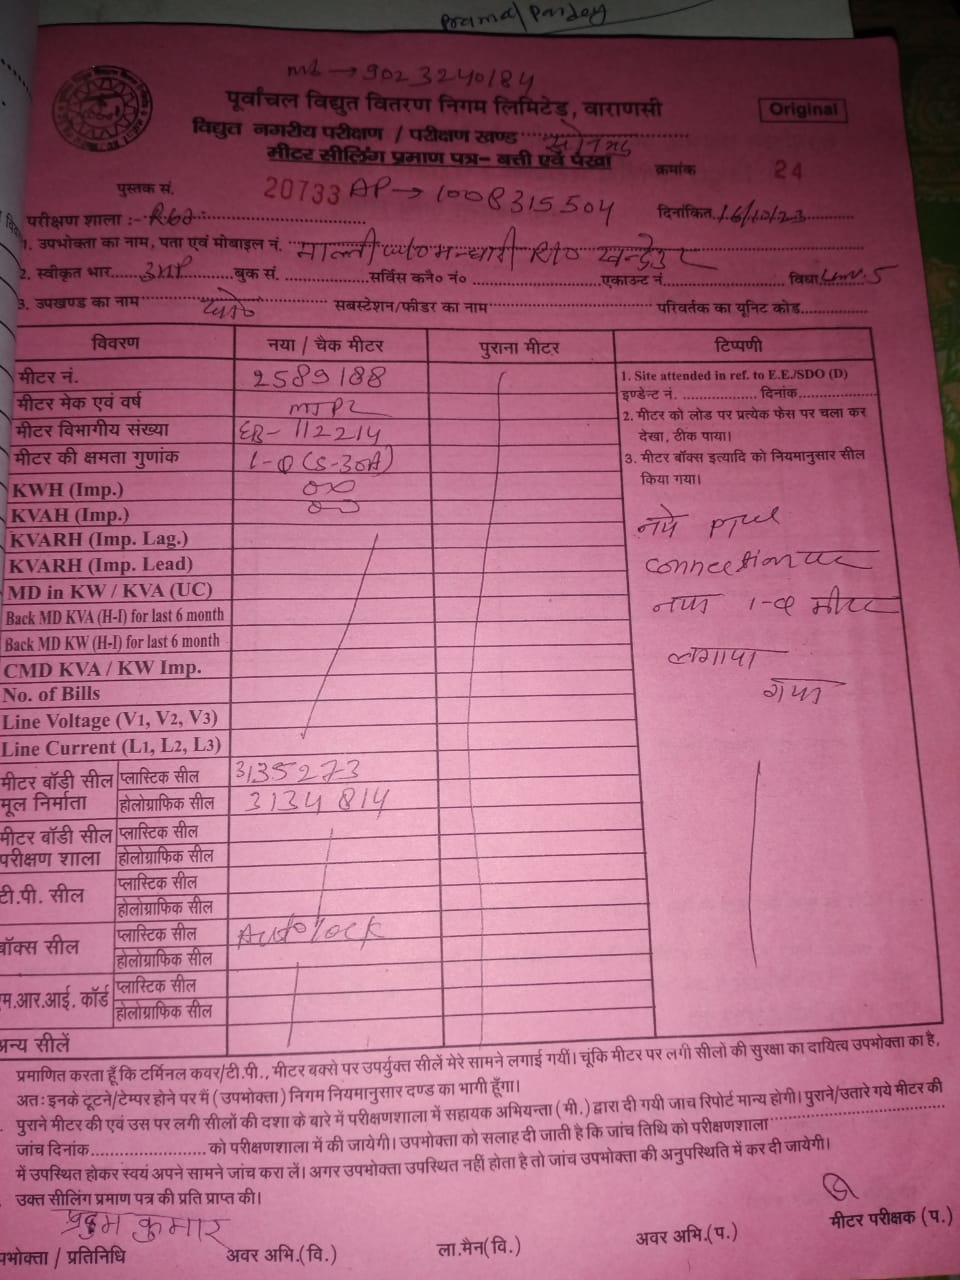 Pramal Pandey
mb → 9023240184
पूर्वांचल विद्युत वितरण निगम लिमिटेड, वाराणसी
Original
विद्युत नगरीय परीक्षण / परीक्षण खण्ड
मीटर सीलिंग प्रमाण पत्र- बत्ती एवं पंखा
क्रमांक 24
पुस्तक सं. 20733 AP → 1008315504
दिनांकित 16/10/23
परीक्षण शाला :-
1. उपभोक्ता का नाम, पता एवं मोबाइल नं.
2. स्वीकृत भार 3HP बुक सं. सर्विस कनै० नं० एकाउन्ट नं. विधा Lmv. 5
3. उपखण्ड का नाम सबस्टेशन/फीडर का नाम परिवर्तक का यूनिट कोड
विवरण नया / चैक मीटर पुराना मीटर टिप्पणी
मीटर नं. 2589188
मीटर मेक एवं वर्ष
मीटर विभागीय संख्या EB- 112214
मीटर की क्षमता गुणांक 1-Φ (5-30A)
KWH (Imp.) 00
KVAH (Imp.) 00
KVARH (Imp. Lag.)
KVARH (Imp. Lead)
MD in KW / KVA (UC)
Back MD KVA (H-I) for last 6 month
Back MD KW (H-I) for last 6 month
CMD KVA / KW Imp.
No. of Bills
Line Voltage (V1, V2, V3)
Line Current (L1, L2, L3)
1. Site attended in ref. to E.E./SDO (D)
इण्डेन्ट नं. दिनांक
2. मीटर को लोड पर प्रत्येक फेस पर चला कर
देखा, ठीक पाया।
3. मीटर बॉक्स इत्यादि को नियमानुसार सील
किया गया।
नये
connection पर
नया 1-Φ मीटर
लगाया
गया
मीटर बॉडी सील प्लास्टिक सील 3135273
मूल निर्माता होलोग्राफिक सील 3134814
मीटर बॉडी सील प्लास्टिक सील
परीक्षण शाला होलोग्राफिक सील
टी.पी. सील प्लास्टिक सील
होलोग्राफिक सील
बॉक्स सील प्लास्टिक सील Auto lock
होलोग्राफिक सील
एम.आर.आई. कॉर्ड प्लास्टिक सील
होलोग्राफिक सील
अन्य सीलें
प्रमाणित करता हूँ कि टर्मिनल कवर/टी.पी., मीटर बक्से पर उपर्युक्त सीलें मेरे सामने लगाई गयीं। चूंकि मीटर पर लगी सीलों की सुरक्षा का दायित्व उपभोक्ता का है,
अतः इनके टूटने/टेम्पर होने पर मैं (उपभोक्ता) निगम नियमानुसार दण्ड का भागी हूँगा।
पुराने मीटर की एवं उस पर लगी सीलों की दशा के बारे में परीक्षणशाला में सहायक अभियन्ता (मी.) द्वारा दी गयी जाच रिपोर्ट मान्य होगी। पुराने/उतारे गये मीटर की
जांच दिनांक को परीक्षणशाला में की जायेगी। उपभोक्ता को सलाह दी जाती है कि जांच तिथि को परीक्षणशाला
में उपस्थित होकर स्वयं अपने सामने जांच करा लें। अगर उपभोक्ता उपस्थित नहीं होता है तो जांच उपभोक्ता की अनुपस्थिति में कर दी जायेगी।
उक्त सीलिंग प्रमाण पत्र की प्रति प्राप्त की।
कुमार
उपभोक्ता / प्रतिनिधि अवर अभि.(वि.) ला.मैन(वि.) अवर अभि.(प.) मीटर परीक्षक (प.)